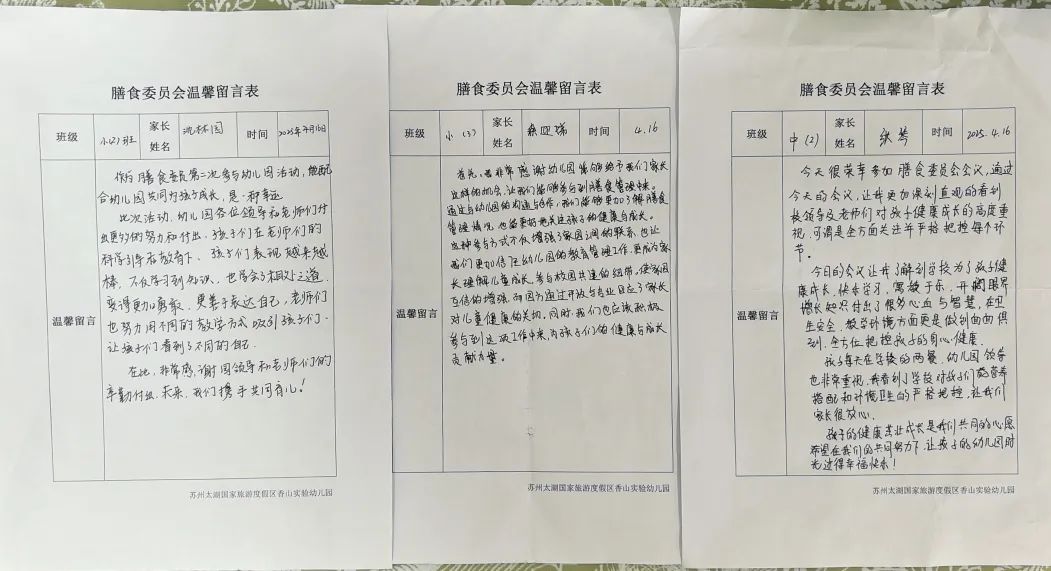 膳食委员会温馨留言表
班级 小(2)班 家长姓名 沈林园 时间 2025年4月16日
温馨留言
作为膳食委员第二次参与幼儿园活动,能配
合幼儿园共同为孩子成长,是一种幸运
此次活动,幼儿园各位领导和老师们付
出更多的努力和付出,孩子们在老师们的
科学引导及教育下、孩子们表现越来越
棒,不仅学习到知识,也学会了相处之道,
变得更加勇敢、更善于表达自己,老师们
也努力用不同的教学方式吸引孩子们、
让孩子们看到了不同的自己.
在此,非常感谢园领导和老师们的
辛勤付出,未来,我们携手共同育儿!
苏州太湖国家旅游度假区香山实验幼儿园
膳食委员会温馨留言表
班级 小(3) 家长姓名 时间 4.16
温馨留言
首先,非常感谢幼儿园能够给予我们家长
这样的机会,让我们能够参与到膳食管理中来.
通过与幼儿园的沟通与合作,我们能够更加了解膳食
管理情况,也能更好地关注孩子的健康与成长.
这种参与方式不仅增强了家园之间的联系,也让
我们更加信任幼儿园的教育管理工作,更成为家
长理解儿童成长、参与校园共建的纽带,使家园
互信的增强,而园方通过开放与专业回应了家长
对儿童健康的关切,同时,我们也应该积极
参与到这项工作中来,为孩子们的健康与成长
贡献力量.
苏州太湖国家旅游度假区香山实验幼儿园
膳食委员会温馨留言表
班级 中(2) 家长姓名 张琴 时间 2025.4.16
温馨留言
今天很荣幸参加膳食委员会会议,通过
今天的会议,让我更加深刻直观的看到
校领导及老师们对孩子健康成长的高度重
视,可谓是全方面关注并严格把控每个环
节.
今日的会议让我了解到学校为了孩子健
康成长,快乐学习,寓教于乐,开阔眼界
增长知识付出了很多心血与智慧,在卫
生安全,教学环境方面更是做到面面俱
到,全方位把控孩子的身心健康.
孩子每天在学校的两餐,幼儿园领导
也非常重视,我看到了学校对孩子们的营养
搭配和环境卫生的严格把控,让我们
家长很放心.
孩子的健康茁壮成长是我们共同的心愿
希望在我们的共同努力下,让孩子的幼儿园时
光过得幸福快乐!
苏州太湖国家旅游度假区香山实验幼儿园